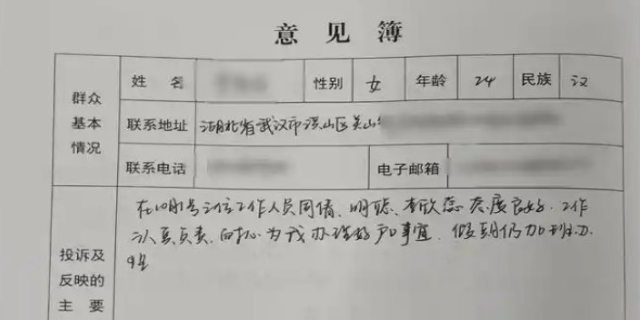 意见簿
群众基本情况 姓名 性别 女 年龄 24 民族 汉
联系地址 湖北省武汉市洪山区关山
联系电话 电子邮箱
投诉及反映的主要
在10月 工作人员周倩、明聪、李欣蕊态度良好,工作
认真负责,耐心为我办理好 事宜,假期仍加班办